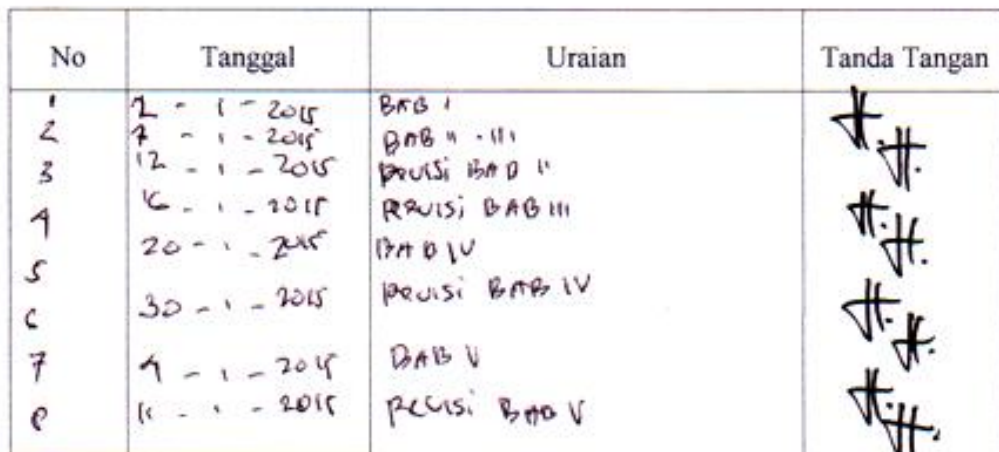 No Tanggal Uraian Tanda Tangan
1 2 - 1 - 2015 BAB I
2 7 - 1 - 2015 BAB II - III
3 12 - 1 - 2015 Revisi BAB II
4 16 - 1 - 2015 Revisi BAB III
5 20 - 1 - 2015 BAB IV
6 30 - 1 - 2015 Revisi BAB IV
7 4 - 1 - 2015 BAB V
8 11 - 1 - 2015 Revisi BAB V